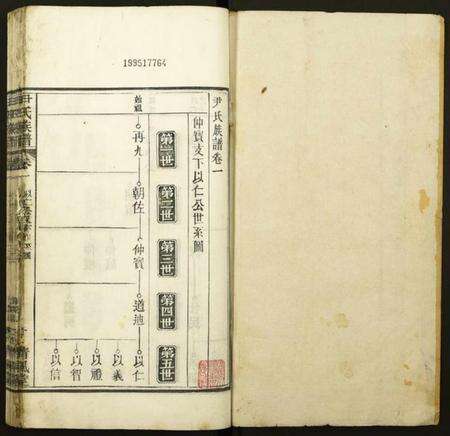 199517764
尹氏族譜卷一
仲寶支下以仁公世系圖
第一世
第二世
第三世
第四世
第五世
始祖
再九
朝佐
仲寶
道迪
以仁
以義
以禮
以智
以信
尹氏族譜
卷一